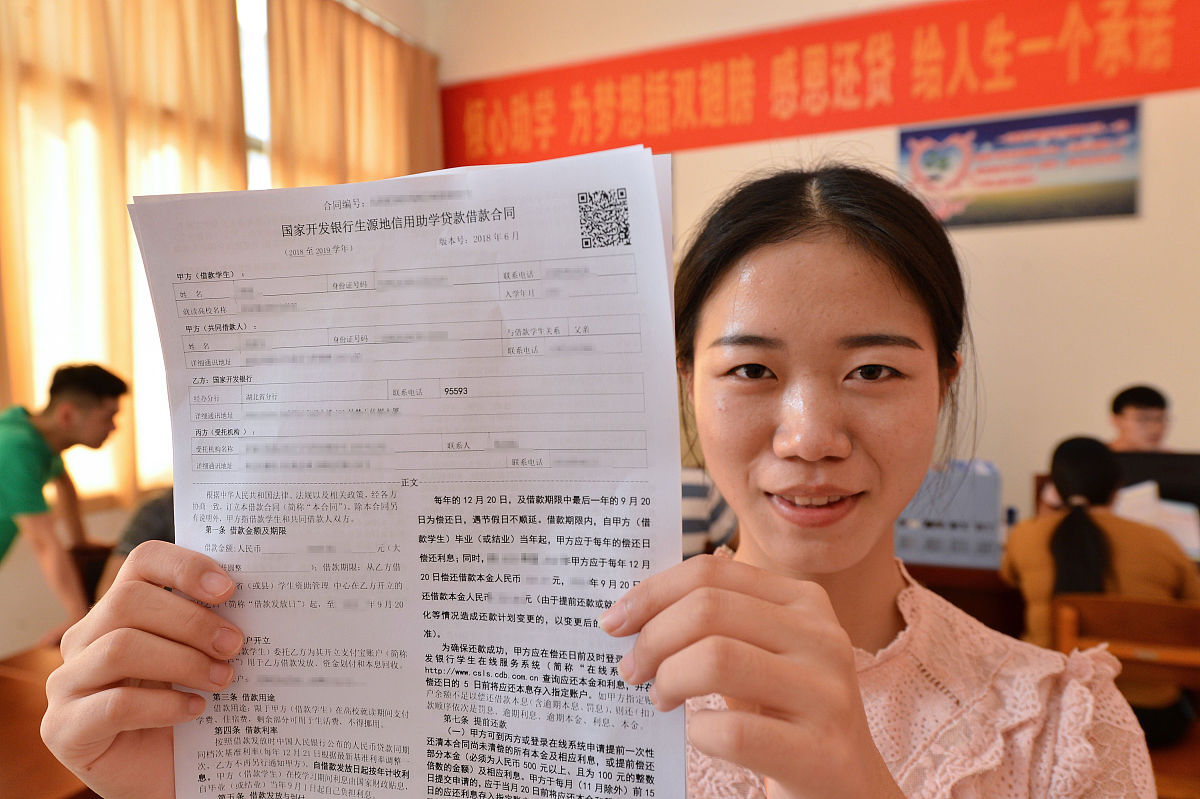 倾心助学 为梦想插双翅膀 感恩还贷 给人生一个承诺
合同编号:
国家开发银行生源地信用助学贷款借款合同
(2018 至 2019 学年)
版本号: 2018 年 6 月
甲方(借款学生):
姓 名 身份证号码 联系电话
就读高校名称 入学年月
甲方(共同借款人):
姓 名 身份证号码 与借款学生关系 父亲
详细通讯地址 联系电话
乙方: 国家开发银行
经办分行 湖北省分行 联系电话 95593
详细通讯地址
丙方(受托机构):
受托机构名称 联系人
详细通讯地址 联系电话
正文
根据中华人民共和国法律、法规以及相关政策,经各方
协商一致,订立本借款合同(简称"本合同")。除本合同另
有说明外,甲方指借款学生和共同借款人双方。
第一条 借款金额及期限
借款金额:人民币 元(大
调整 );借款期限:从乙方借
省(或县)学生资助管理中心在乙方开立的
(简称"借款发放日")起,至 年 9 月 20
户开立
学生)委托乙方为其开立支付宝账户(简称
")用于乙方借款发放、资金划付和本息回收。
户:
第三条 借款用途
借款用途:限于甲方(借款学生)在高校就读期间支付
学费、住宿费,剩余部分可用于生活费,不得挪用。
第四条 借款利率
按照借款发放时中国人民银行公布的人民币贷款同期
同档次基准利率(每年 12 月 21 日根据最新基准利率调整一
次,乙方不再另行通知甲方)。自借款发放日起按年计收利
息。甲方(借款学生)在校学习期间利息由国家财政贴息,
自毕业(或结业)当年 9 月 1 日起自己负担利息。
第五条 借款发放与划付
每年的 12 月 20 日,及借款期限中最后一年的 9 月 20
日为偿还日,遇节假日不顺延。借款期限内,自甲方(借
款学生)毕业(或结业)当年起,甲方应于每年的偿还日
偿还利息;同时, 年甲方应于每年 12 月
20 日偿还借款本金人民币 元, 年 9 月 20 日
还借款本金人民币 元(由于提前还款或就
化等情况造成还款计划变更的,以变更后的
准)。
为确保还款成功,甲方应在偿还日前及时登录
发银行学生在线服务系统(简称"在线系
http://www.csls.cdb.com.cn 查询应还本金和利息,并在
偿还日的 5 日前将应还本息存入指定账户。如甲方指定账
户余额不足以偿还借款本息(含逾期本息、罚息),则还(扣)
款顺序依次是罚息、逾期利息、逾期本金、利息、本金。
第七条 提前还款
(一)甲方可到丙方或登录在线系统申请提前一次性
还清本合同尚未清偿的所有本金及相应利息,或提前偿还
部分本金(必须为人民币 500 元以上、且为 100 元的整数
倍数的金额)及相应利息。甲方于每月(11 月除外)前 15
日提交申请的,应于当月 20 日前将应还本金和
日的应还利息存入指定账户